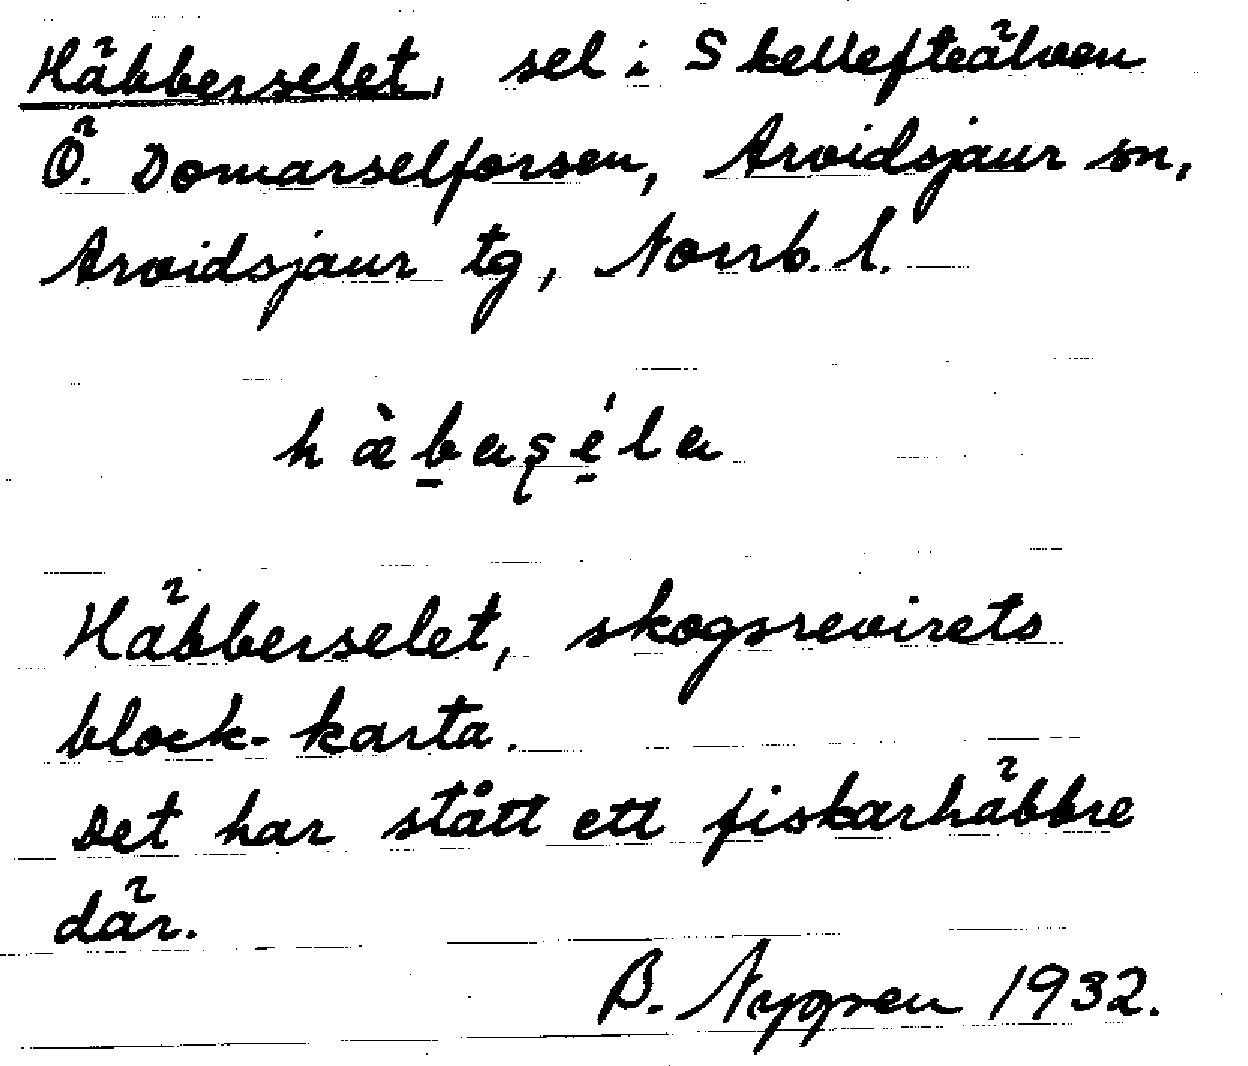 Häbberselet, sel i Skellefteälven
Ö. Domarselforsen, Arvidsjaur sn,
Arvidsjaur tg, Norrb. l.
hæ̀başéla
Häbberselet, skogsrevirets
block-karta.
Det har stått ett fiskarhäbbre
där.
B. Nygren 1932.